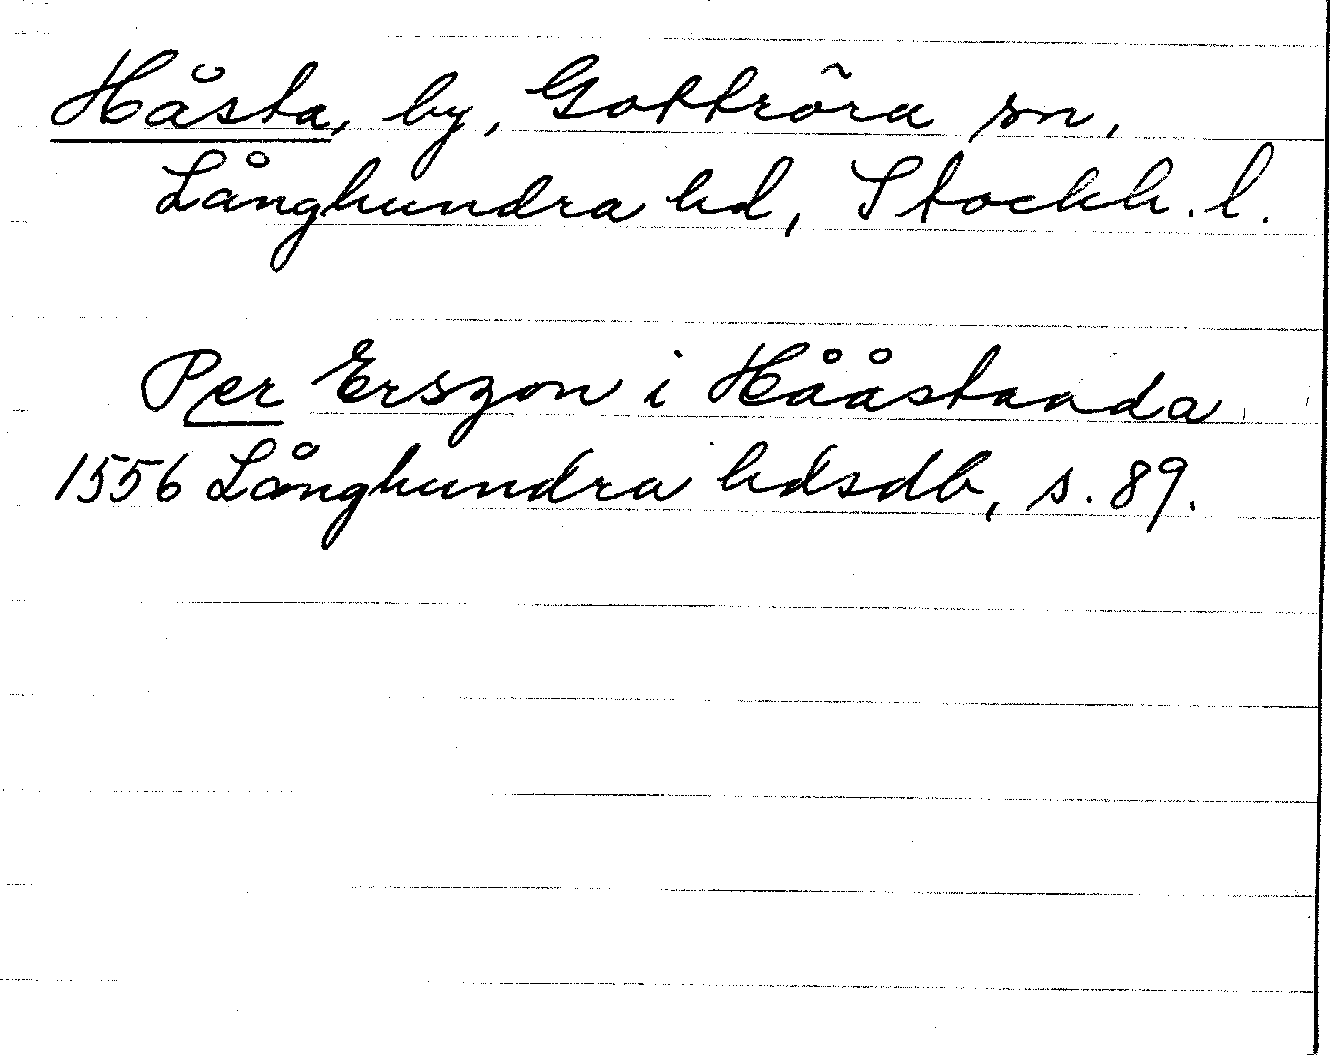 Hästa, by, Gottröra sn,
Långhundra hd, Stockh. l.
Per Erszon i Hååstaada
1556 Långhundra hdsdb, s. 89.